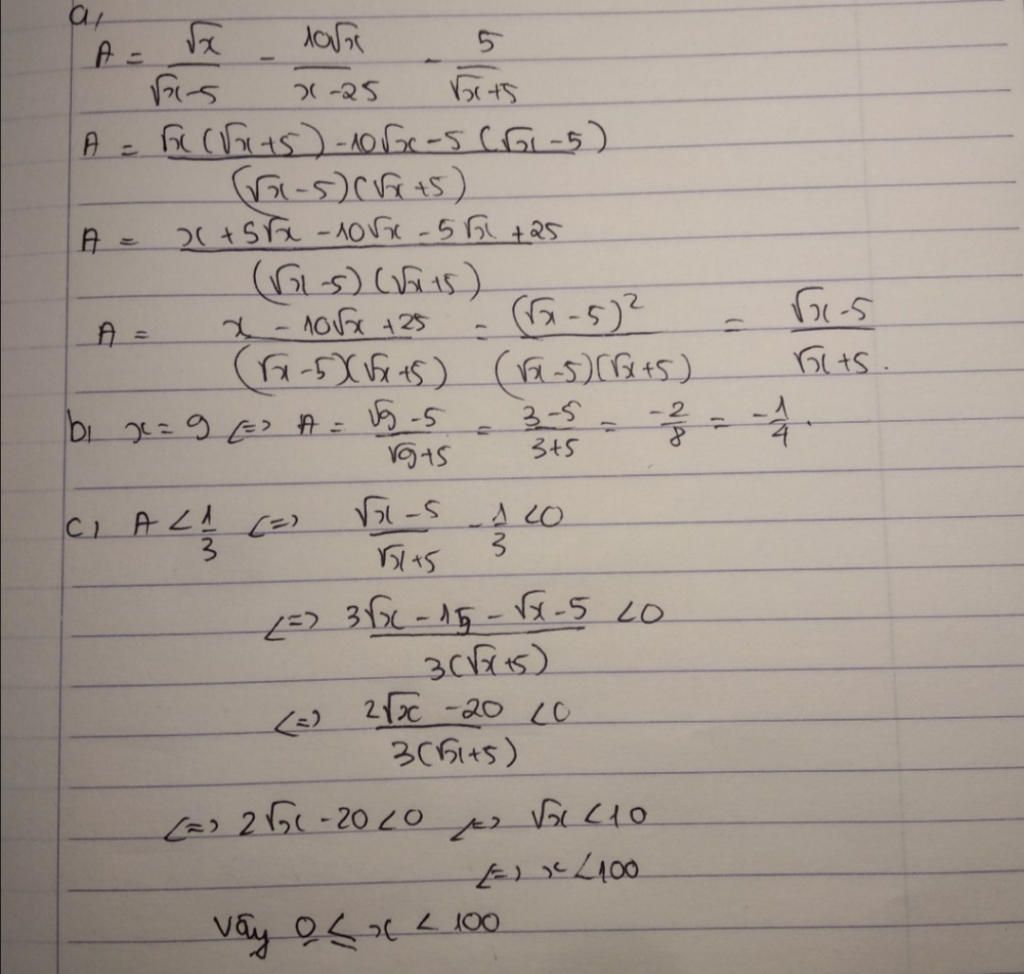 a,
A = √x/(√x-5) - 10√x/(x-25) - 5/(√x+5)
A = (√x(√x+5) - 10√x - 5(√x-5))/((√x-5)(√x+5))
A = (x + 5√x - 10√x - 5√x + 25)/((√x-5)(√x+5))
A = (x - 10√x + 25)/((√x-5)(√x+5)) = (√x-5)²/((√x-5)(√x+5)) = (√x-5)/(√x+5).
b, x = 9 <=> A = (√9-5)/(√9+5) = (3-5)/(3+5) = -2/8 = -1/4.
c, A < 1/3 <=> (√x-5)/(√x+5) - 1/3 < 0
<=> (3√x - 15 - √x - 5)/(3(√x+5)) < 0
<=> (2√x - 20)/(3(√x+5)) < 0
<=> 2√x - 20 < 0 <=> √x < 10
<=> x < 100
Vậy 0 ≤ x < 100